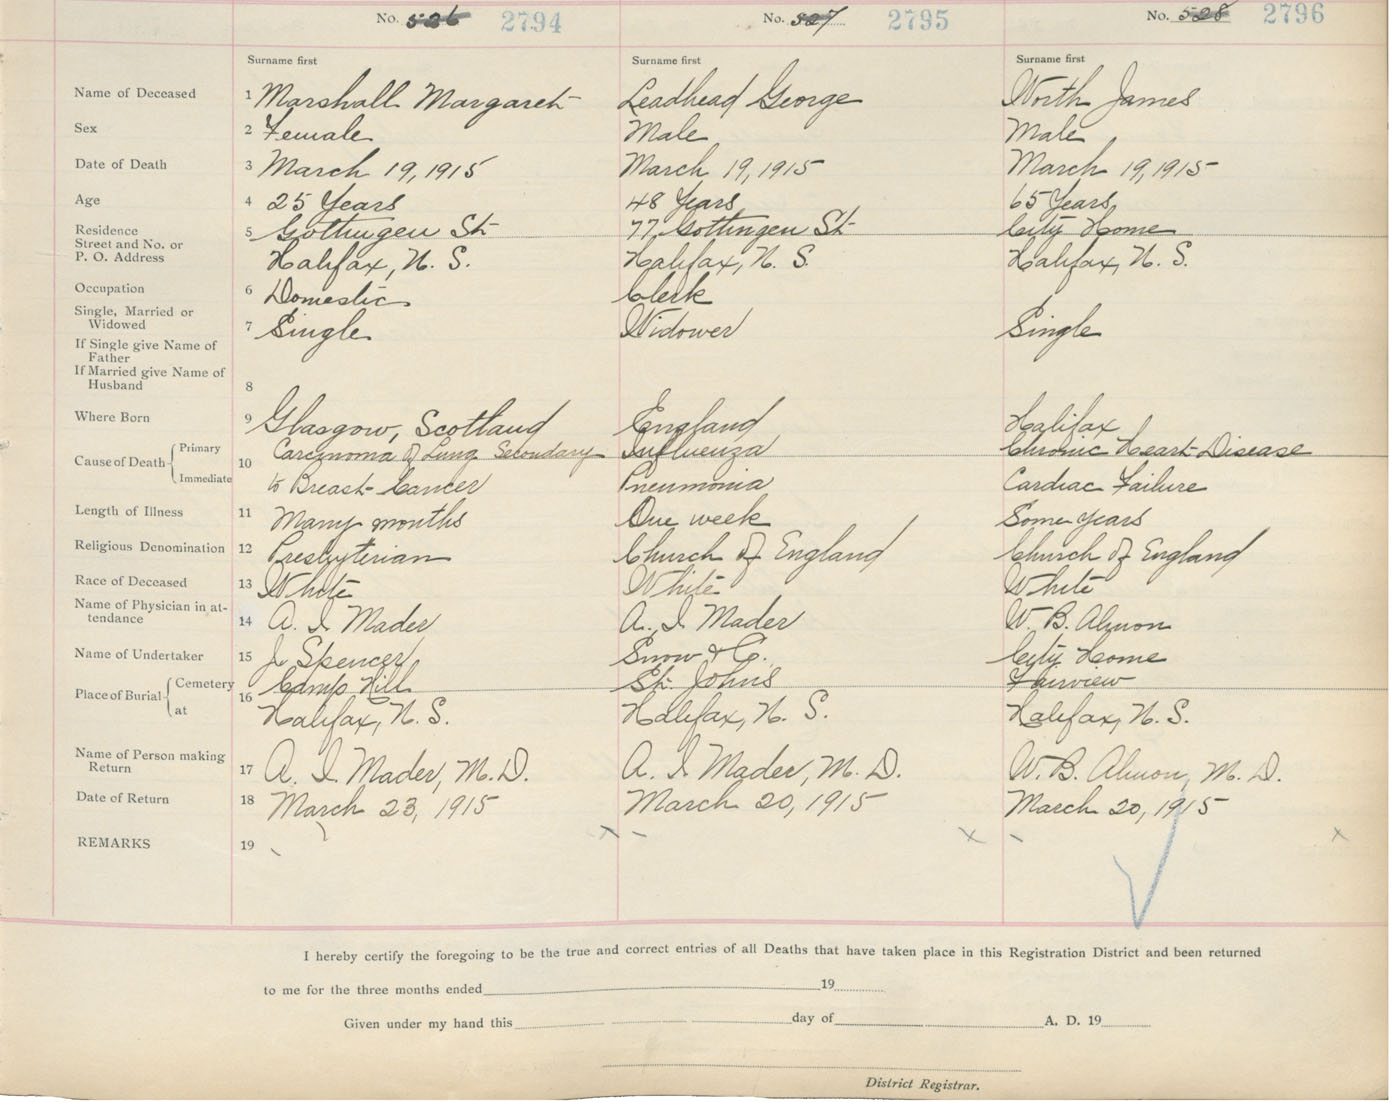 No. 526 2794 No. 527 2795 No. 528 2796
Surname first Surname first Surname first
Name of Deceased 1 Marshall Margaret Leadhead George North James
Sex 2 Female Male Male
Date of Death 3 March 19, 1915 March 19, 1915 March 19, 1915
Age 4 25 Years 48 Years 65 Years
Residence 5 Gottingen St. 77 Gottingen St. City Home
Street and No. or
P. O. Address Halifax, N. S. Halifax, N. S. Halifax, N. S.
Occupation 6 Domestic Clerk
Single, Married or
Widowed 7 Single Widower Single
If Single give Name of
Father
If Married give Name of
Husband 8
Where Born 9 Glasgow, Scotland England Halifax
Cause of Death Primary 10 Carcinoma of Lung Secondary Influenza Chronic Heart Disease
Immediate to Breast Cancer Pneumonia Cardiac Failure
Length of Illness 11 Many months One week Some years
Religious Denomination 12 Presbyterian Church of England Church of England
Race of Deceased 13 White White White
Name of Physician in at-
tendance 14 A. I. Mader A. I. Mader W. B. Almon
Name of Undertaker 15 J. Spencer Snow & Co. City Home
Place of Burial Cemetery 16 Camp Hill St. Johns Fairview
at Halifax, N. S. Halifax, N. S. Halifax, N. S.
Name of Person making
Return 17 A. I. Mader, M. D. A. I. Mader, M. D. W. B. Almon, M. D.
Date of Return 18 March 23, 1915 March 20, 1915 March 20, 1915
REMARKS 19
I hereby certify the foregoing to be the true and correct entries of all Deaths that have taken place in this Registration District and been returned
to me for the three months ended 19
Given under my hand this day of A. D. 19
District Registrar.